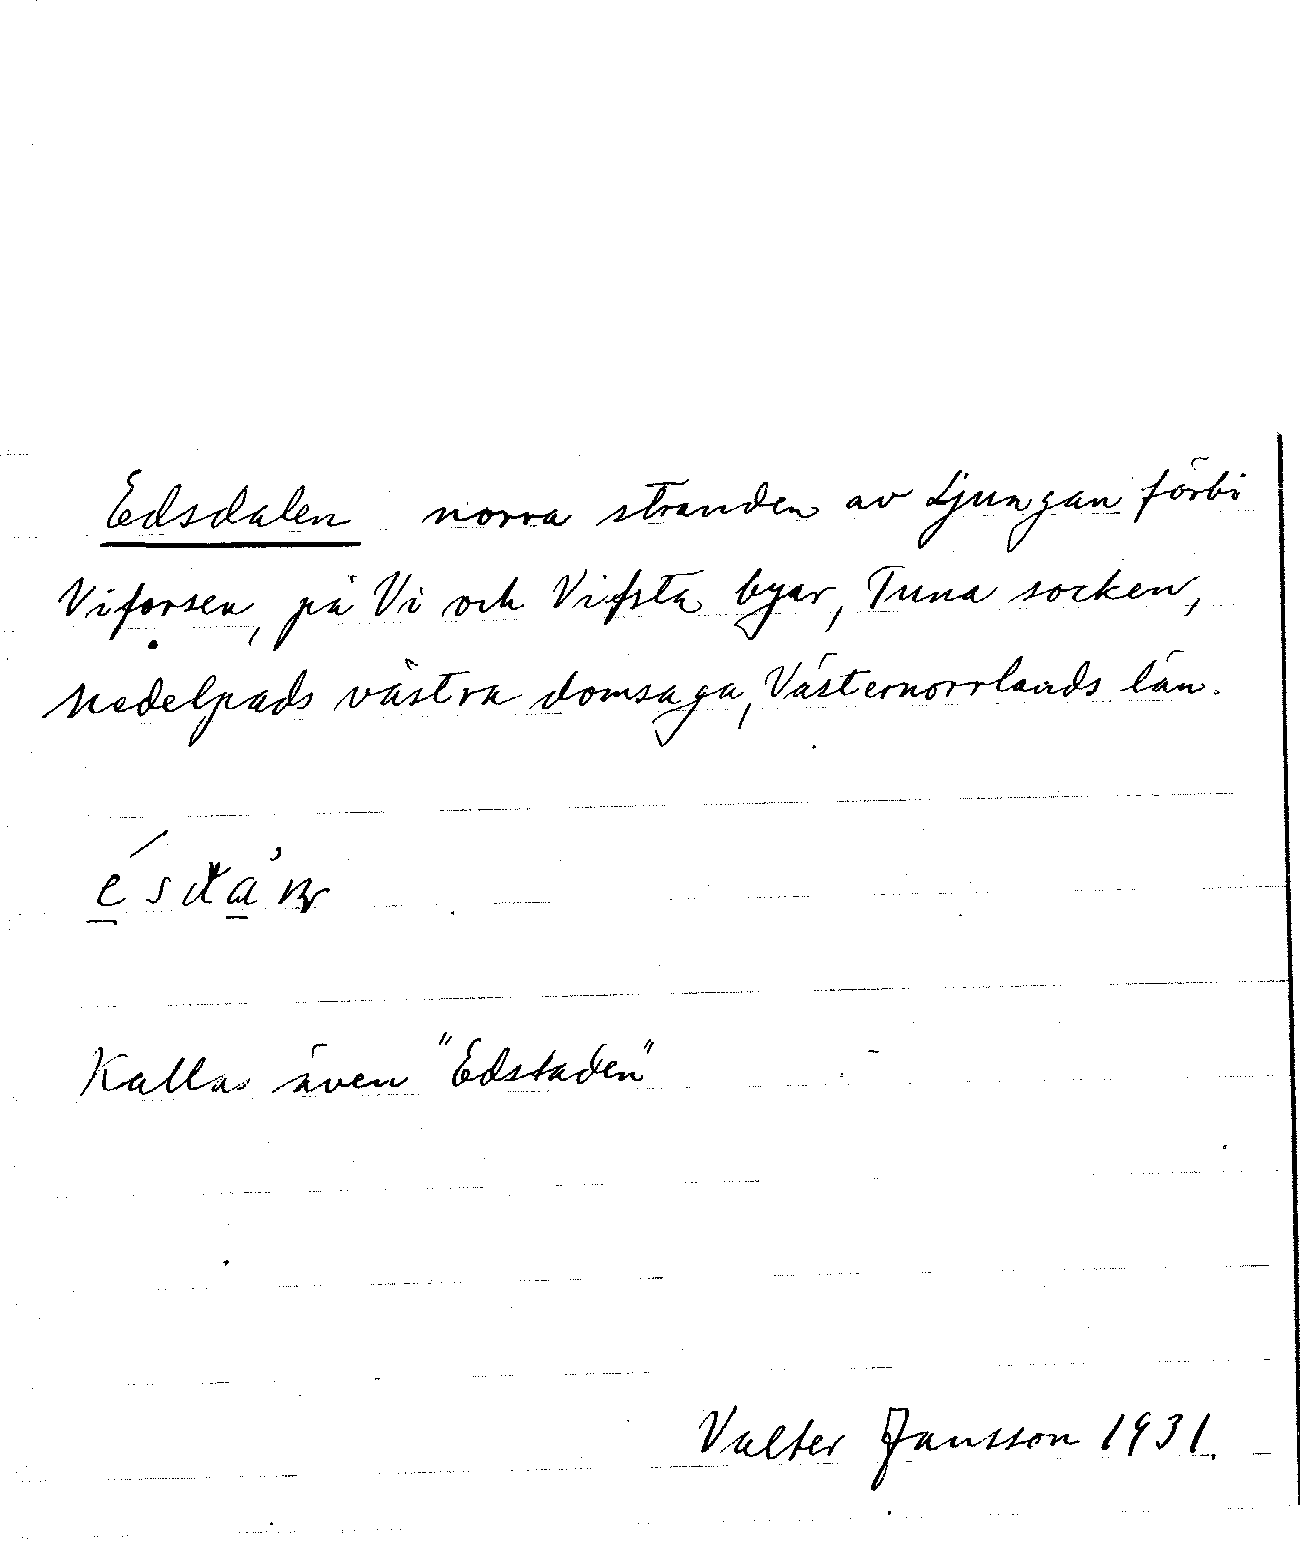 Edsdalen norra stranden av Ljungan förbi
Viforsen, på Vi och Vifsta byar, Tuna socken,
Medelpads västra domsaga, Västernorrlands län.
Kallas även "Edstaden"
Valter Jansson 1931.